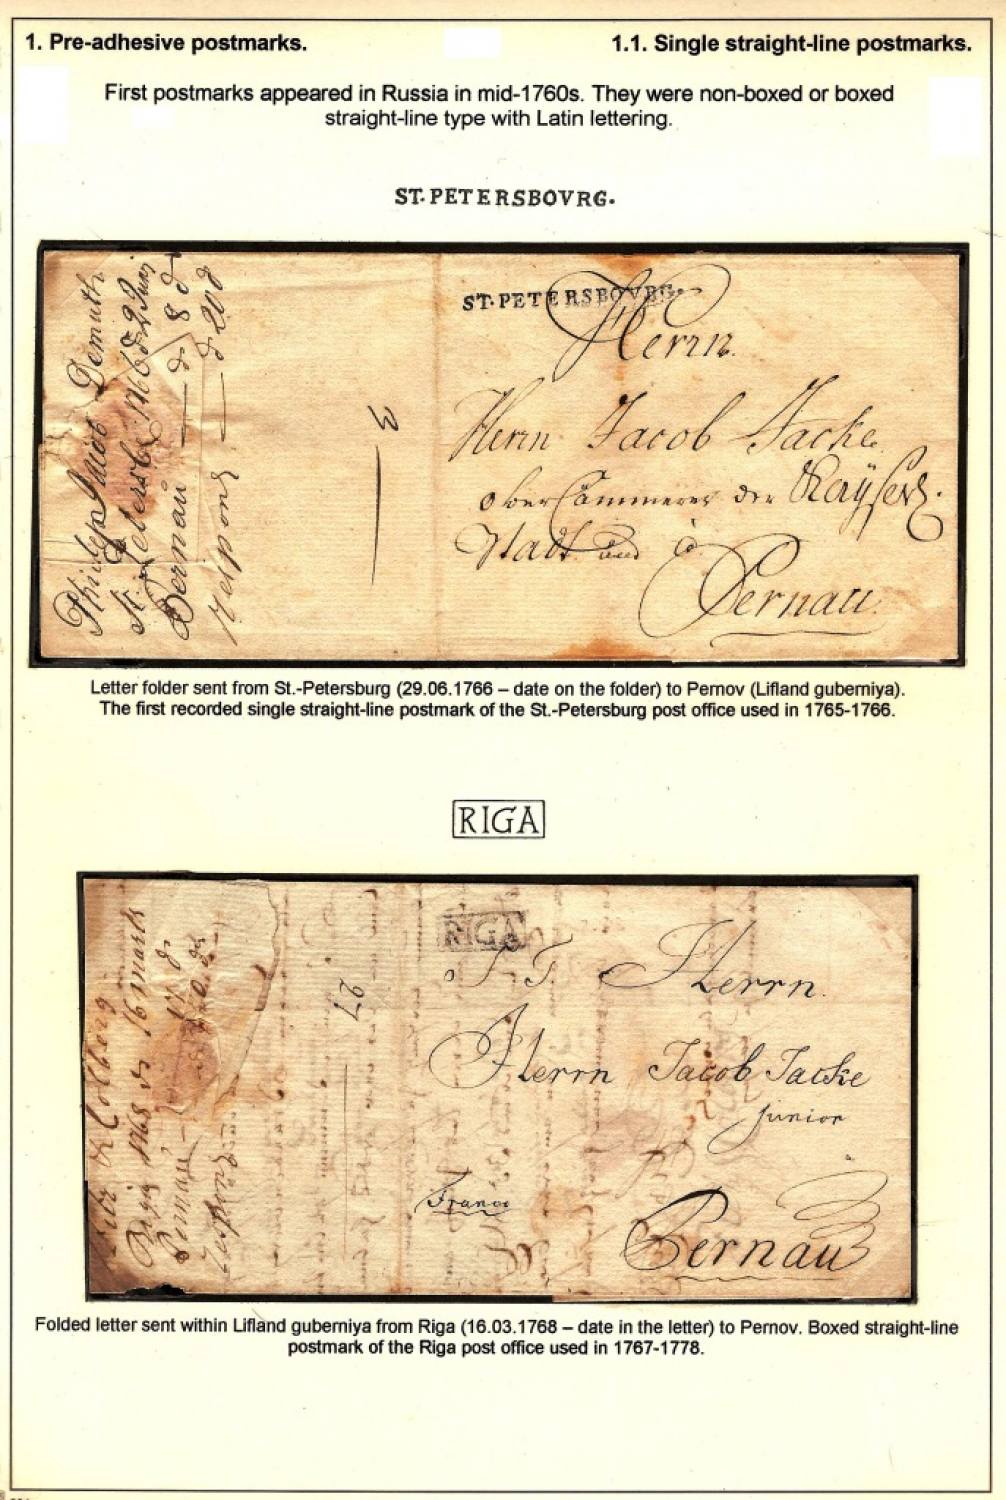 1. Pre-adhesive postmarks. 1.1. Single straight-line postmarks.
First postmarks appeared in Russia in mid-1760s. They were non-boxed or boxed
straight-line type with Latin lettering.
ST·PETERSBOVRG·
ST·PETERSBOVRG·
Herrn
Herrn Jacob Jacke
Stadt
Pernau
3
Demuth
St Petersb 1766 d
Pernau — d 8 d
Respond — d 20 d
Letter folder sent from St.-Petersburg (29.06.1766 – date on the folder) to Pernov (Lifland guberniya).
The first recorded single straight-line postmark of the St.-Petersburg post office used in 1765-1766.
RIGA
RIGA
27
S. T. Herrn
Herrn Jacob Jacke
junior
Franco
Pernau
Riga 1768 d 16 mart
Pernau
Folded letter sent within Lifland guberniya from Riga (16.03.1768 – date in the letter) to Pernov. Boxed straight-line
postmark of the Riga post office used in 1767-1778.